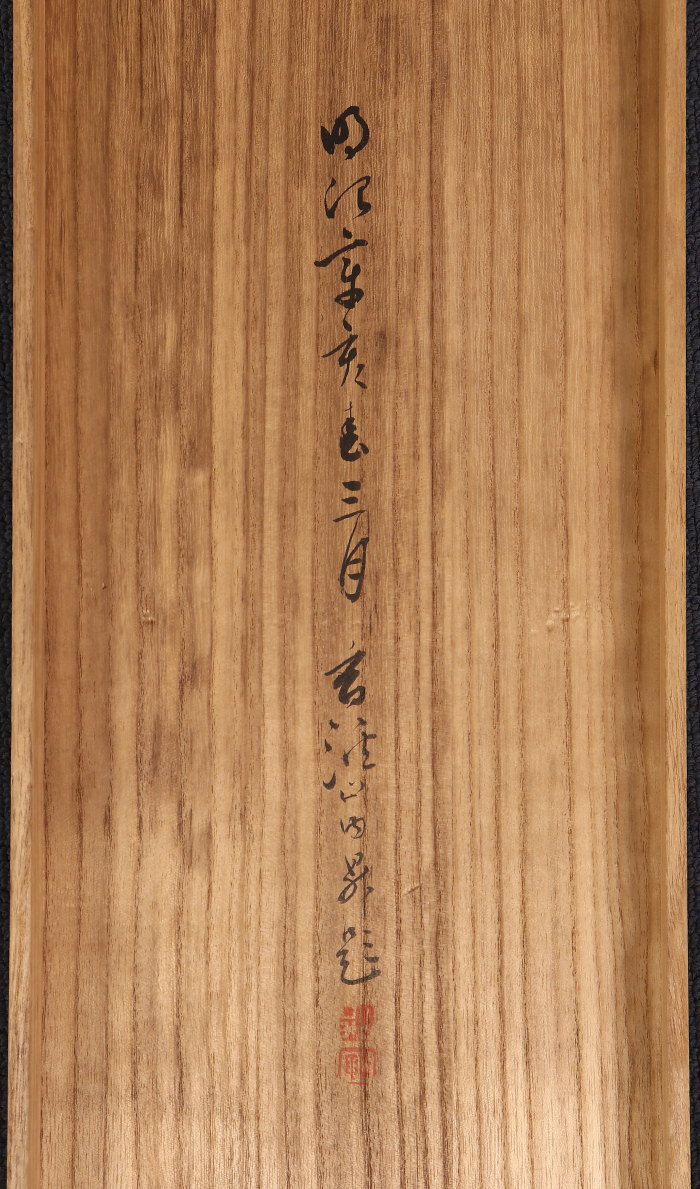 明治辛亥春三月 香溪山内昇題